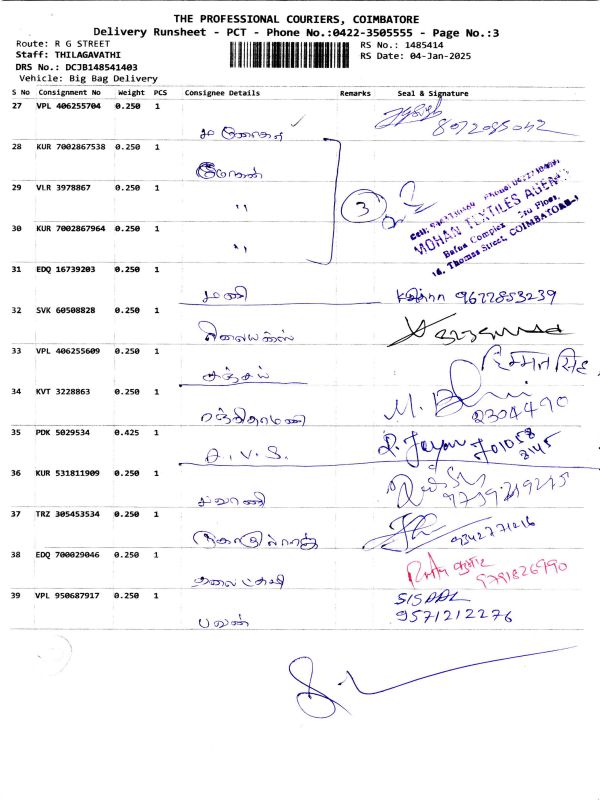 THE PROFESSIONAL COURIERS, COIMBATORE
Delivery Runsheet - PCT - Phone No.:0422-3505555 - Page No.:3
Route: R G STREET
RS No.: 1485414
Staff: THILAGAVATHI
RS Date: 04-Jan-2025
DRS No.: DCJB148541403
Vehicle: Big Bag Delivery
S No Consignment No Weight PCS Consignee Details Remarks Seal & Signature
27 VPL 406255704 0.250 1
8072085042
28 KUR 7002867538 0.250 1
மோகன்
29 VLR 3978867 0.250 1
,,
3
MOHAN TEXTILES AGENCY
Bafna Complex 3rd Floor,
14, Thomas Street, COIMBATORE-1
30 KUR 7002867964 0.250 1
,,
31 EDQ 16739203 0.250 1
மணி
9677853239
32 SVK 60508828 0.250 1
33 VPL 406255609 0.250 1
சஞ்சய்
हिम्मत सिंह
34 KVT 3228863 0.250 1
ரஞ்சிதாமணி
M.
2304490
35 PDK 5029534 0.425 1
A.V.S.
R. Jeyam 701058
3145
36 KUR 531811909 0.250 1
பவானி
9759219215
37 TRZ 305453534 0.250 1
9342771216
38 EDQ 700029046 0.250 1
RAM कुमार
9791826990
39 VPL 950687917 0.250 1
பவன்
9571212276